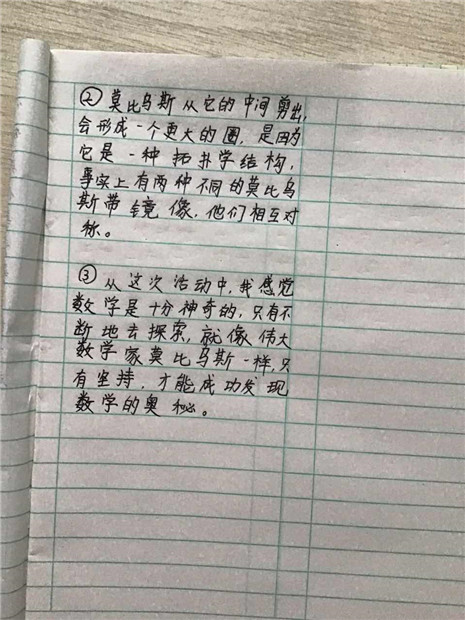 ②莫比乌斯从它的中间剪出,
会形成一个更大的圈,是因为
它是一种拓扑学结构,
事实上有两种不同的莫比乌
斯带镜像,他们相互对
称。
③从这次活动中,我感觉
数学是十分神奇的,只有不
断地去探索,就像伟大
数学家莫比乌斯一样,只
有坚持,才能成功发现
数学的奥秘。